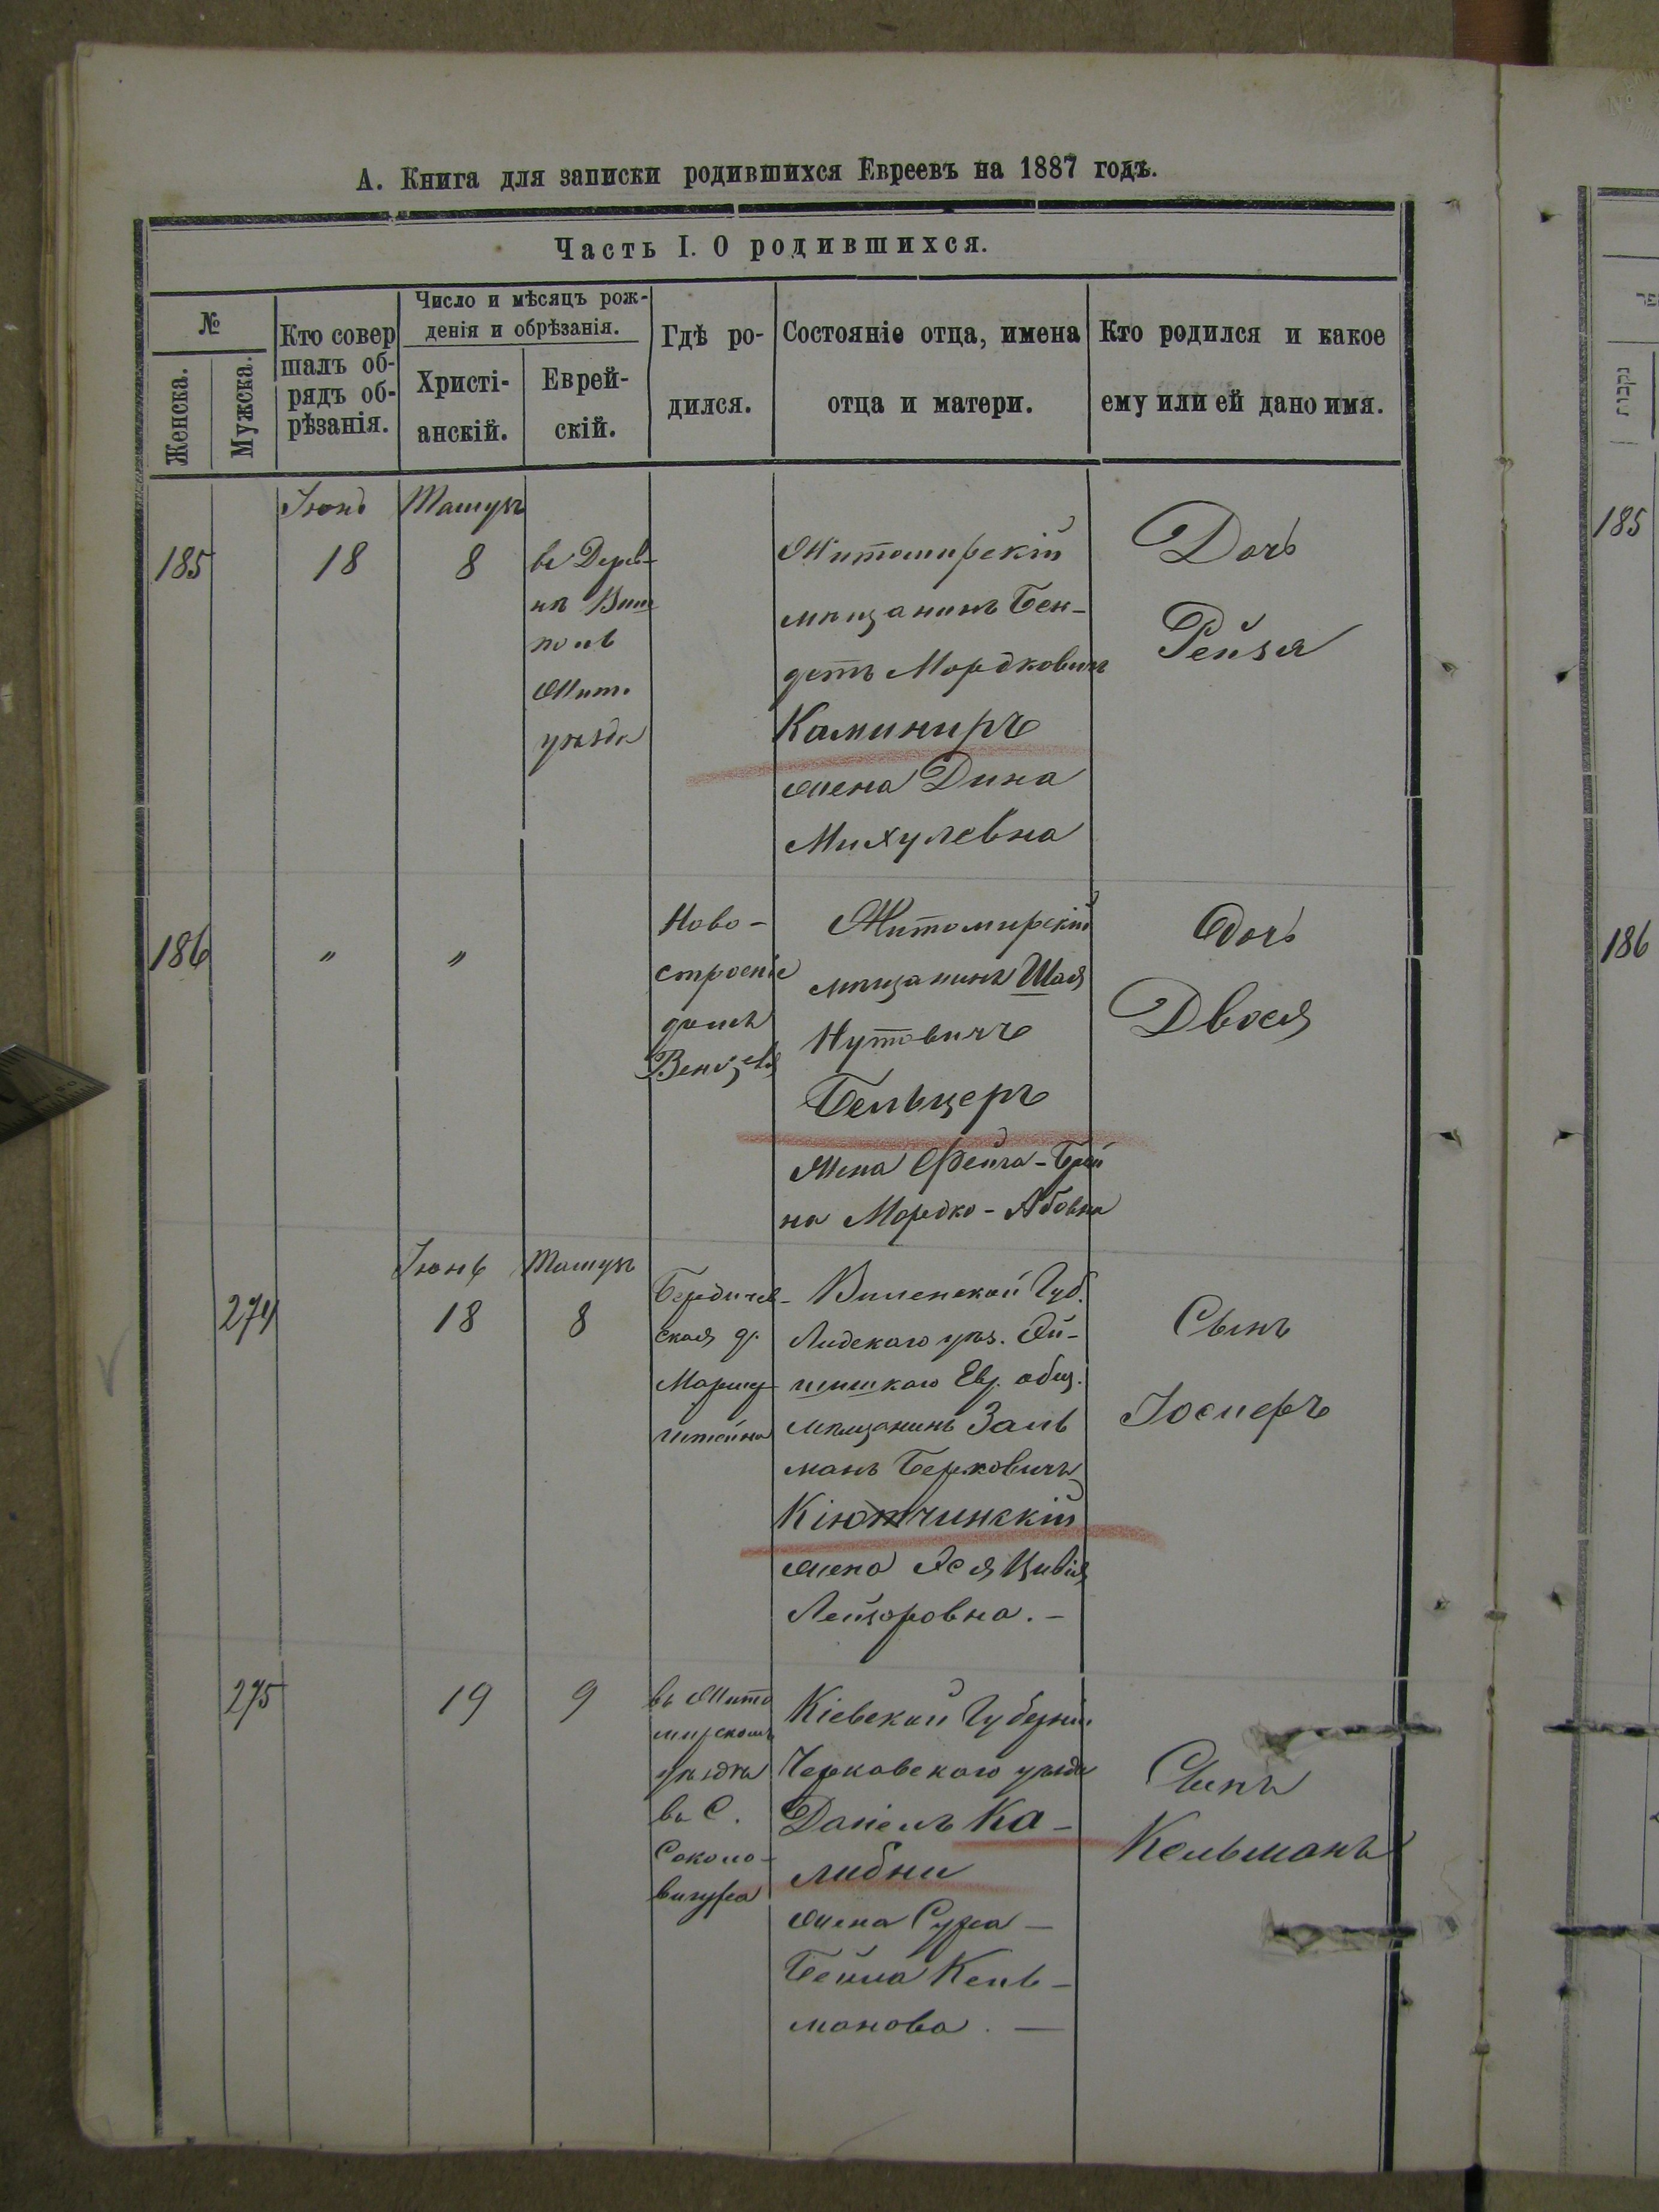 А. Книга для записки родившихся Евреевъ на 1887 годъ.
Часть I. О родившихся.
№
Женска.
Мужска.
Кто совер
шалъ об-
рядъ об-
рѣзанія.
Число и мѣсяцъ рож-
денія и обрѣзанія.
Христі-
анскій.
Еврей-
скій.
Гдѣ ро-
дился.
Состояніе отца, имена
отца и матери.
Кто родился и какое
ему или ей дано имя.
185
Іюнь
18
Тамузъ
8
въ Дерев-
нѣ
Жит.
уѣзда
Житомирскій
мѣщанинъ Бен-
Мордковичъ
Каминиръ
жена Дина
Михулевна
Дочь
Рейзя
186
"
"
Ново-
строеніе
домъ
Житомирскій
мѣщанинъ Шая
Нутовичъ
Бельцеръ
жена Фейга-Брай
на Мордко-Абовна
Дочь
Двося
274
Іюнь
18
Тамузъ
8
Бердичев-
ская д.
Виленской Губ.
Лидскаго уѣз. Эй-
шишкаго Евр. общ.
мѣщанинъ Заль
манъ Берковичъ
Кіютчинскій
жена Ася Цивія
Лейзоровна. -
Сынъ
Іосиеръ
275
19
9
въ Жито
мирскомъ
уѣздѣ
въ С.
Кіевской Губерніи
уѣзда
Даніель Ка-
либни
жена Сура-
Бейла Кель-
манова. -
Сынъ
Кельманъ
185
186
נקבות